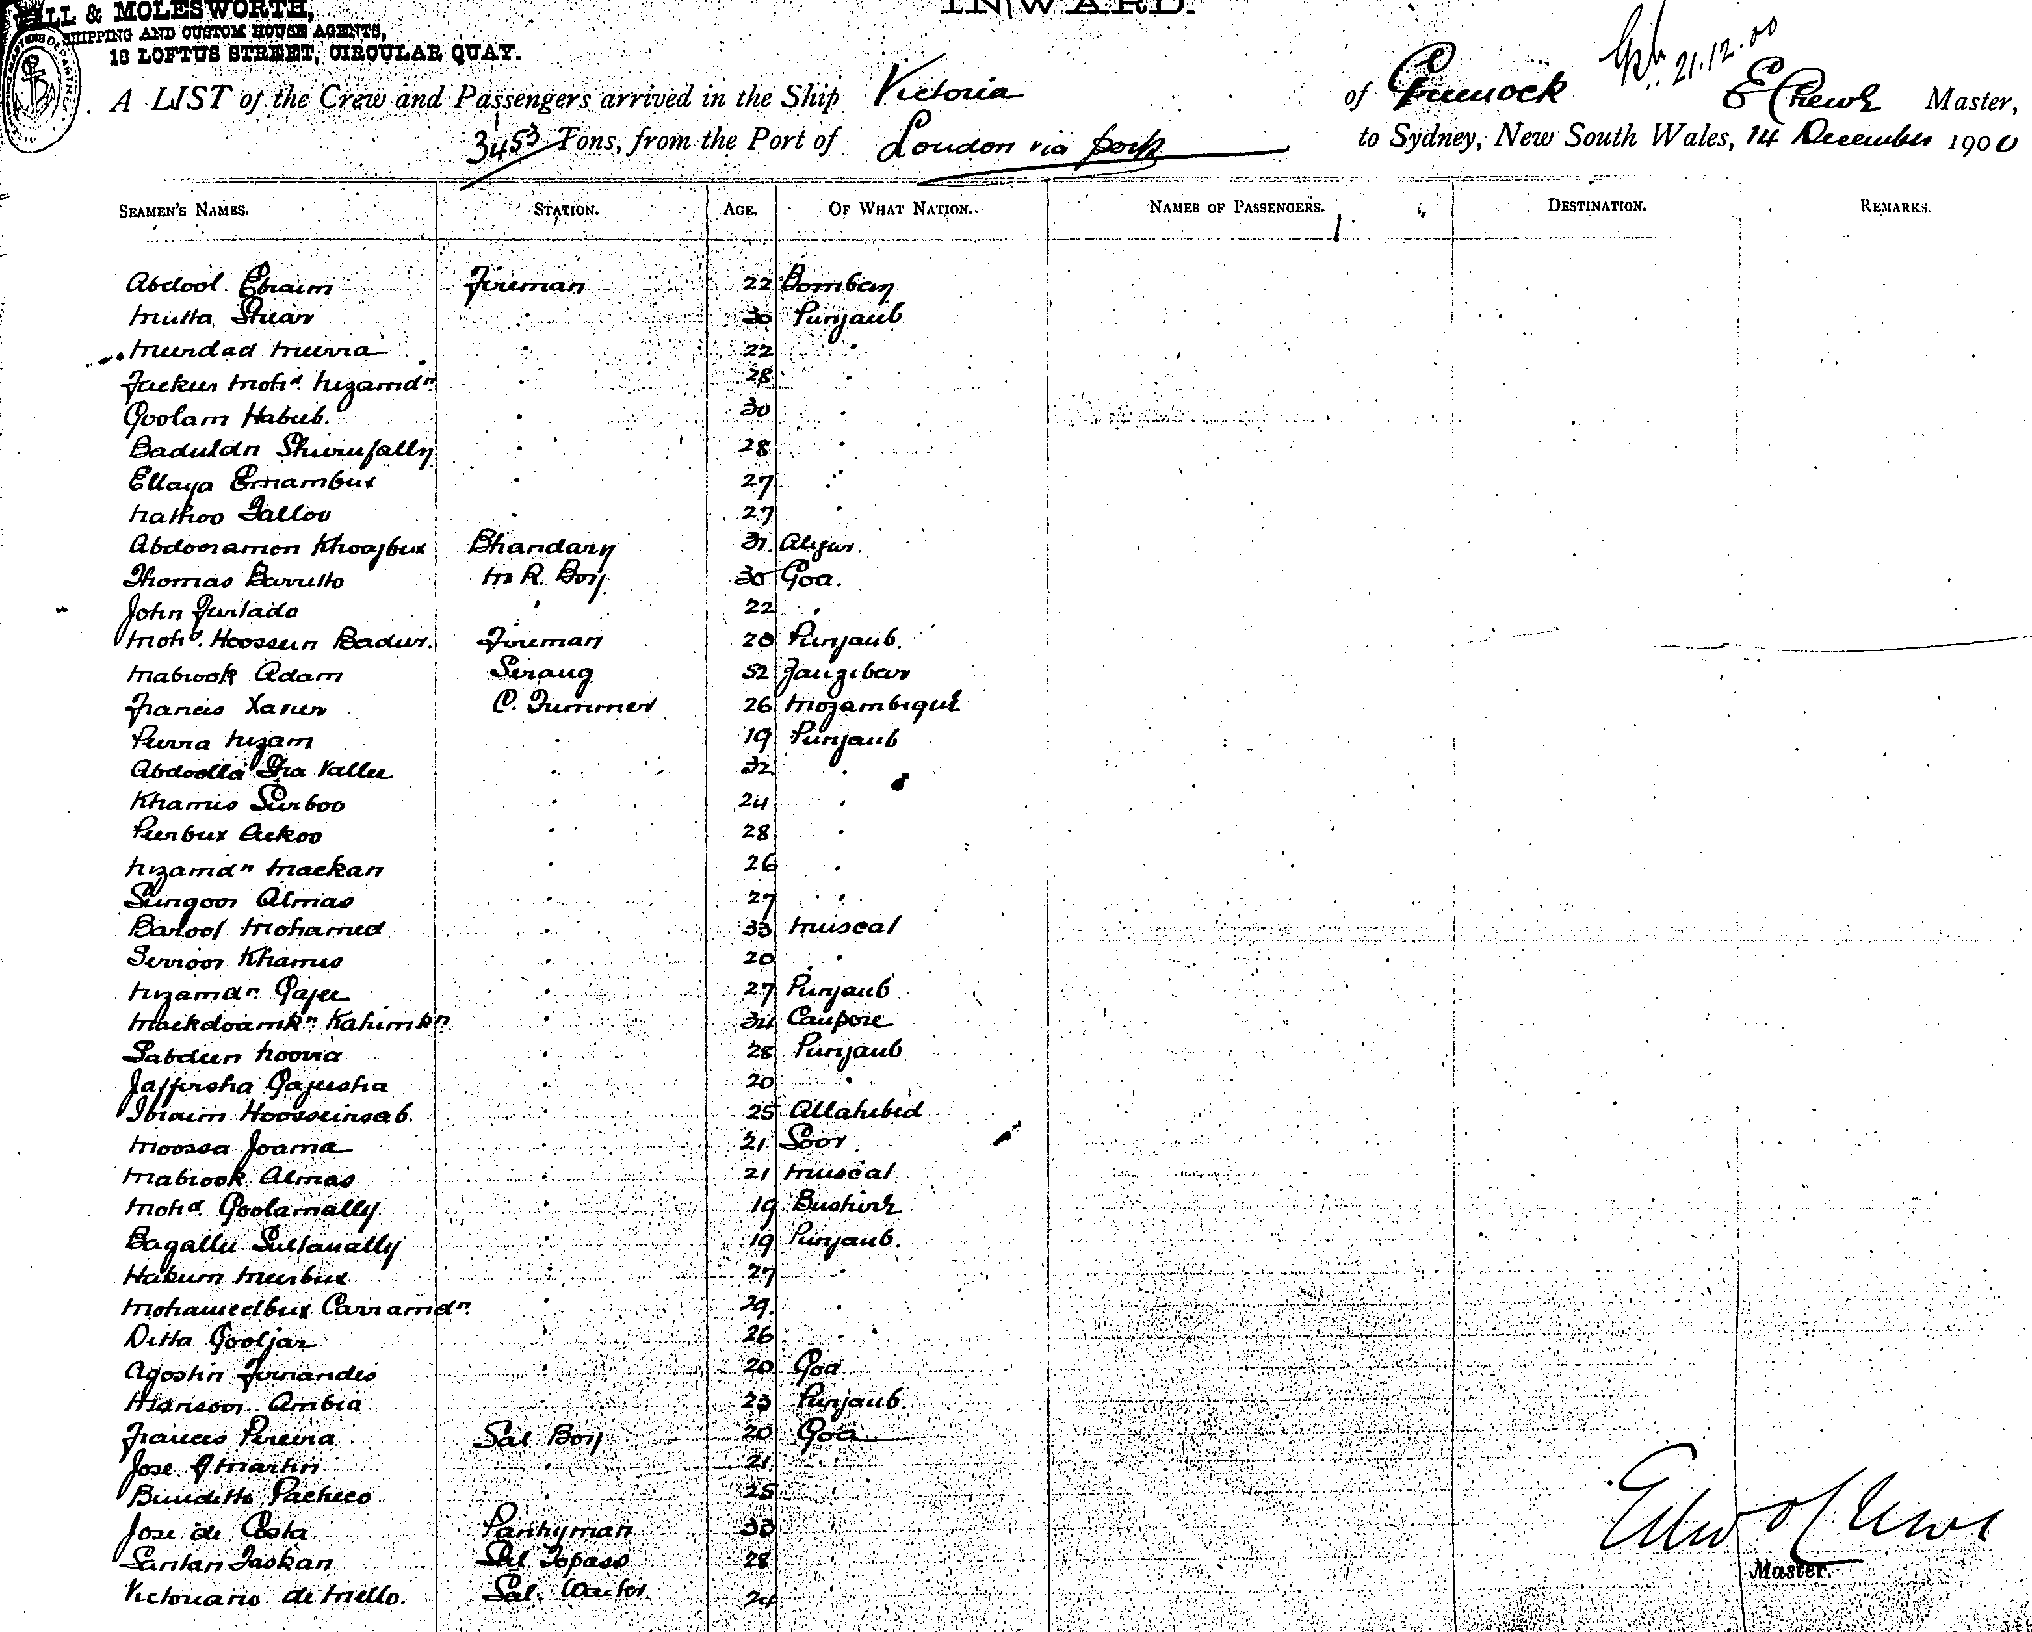 INWARD.
ILL & MOLESWORTH,
SHIPPING AND CUSTOM HOUSE AGENTS,
18 LOFTUS STREET, CIRCULAR QUAY.
21.12.00
A LIST of the Crew and Passengers arrived in the Ship Victoria of Greenock E Crewe Master,
3453 Tons, from the Port of London via ports to Sydney, New South Wales, 14 December 1900
SEAMEN'S NAMES. STATION. AGE. OF WHAT NATION. NAMES OF PASSENGERS. DESTINATION. REMARKS.
Abdool Ebraim Fireman 22 Bombay
Mutta 30 Punjaub
Murdad 22 "
Fackir Mohd. Nizamdn. " 28 "
Goolam Habib. " 30 "
Baduldn " 28 "
Ellaya Emambux " 27 "
Nathoo Talloo " 27 "
Abdooramon Khoajbux Bhandary 31
Thomas Barretto M R. Boy 30 Goa.
John Furtado " 22 "
Mohd. Hoossein Badur. Fireman 20 Punjaub.
Mabrook Adam Serang 52 Zanzibar
Francis Xavier C. Trimmer 26 Mozambique
Peerra Nizam " 19 Punjaub
Abdoolla Vallee " 32 "
Khamis Surboo " 24 "
Peerbux Ackoo " 28 "
Nizamdn Mackan " 26 "
Sungoor Almas " 27 "
Barool Mohamed " 33 Muscat
Khamis " 20 "
Nizamdn. Gajee " 27 Punjaub
Mackdoomkn. Kahimkn " 34 Caupore
Sabdeen Noora " 28 Punjaub
Jaffersha Gajusha " 20 "
Ibraim Hoosseinsab. " 25 Allahebed
Moossa Joama " 21 Soor
Mabrook Almas " 21 Muscat
Mohd Goolamally " 19 Bushire
Bagallee Sultanally " 19 Punjaub.
Hakum Meerbux " 27 "
Mohamedbux Carramdn. " 29 "
Ditta Gooljar " 26 "
Agostin Fernandes " 20 Goa
Mansoor Ambia " 23 Punjaub.
Frances Pereira Sal Boy 20 Goa
Jose Martin " 21 "
Beneditto Pacheco " 25 "
Jose de Costa Pantryman 33 "
Santan Taskan Sal Topass 28 "
Victoriano de Mello. Sal. 24
Edw Crewe
Master.